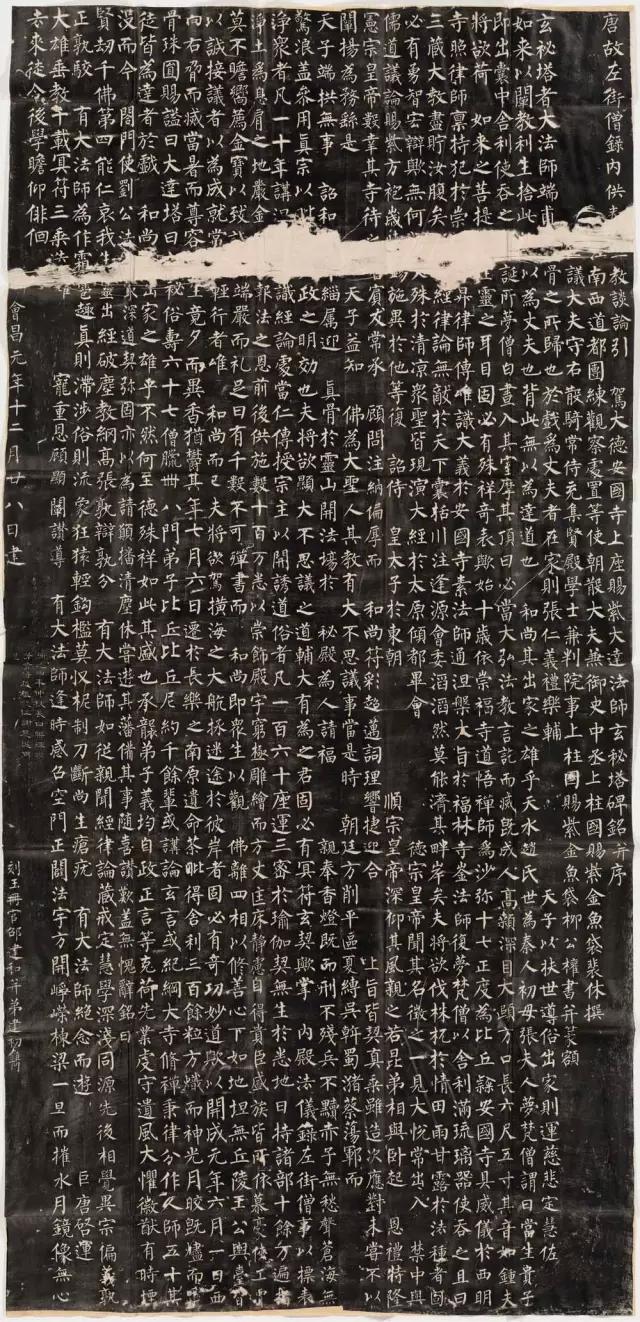 唐故左街僧錄內供教談論引 駕大德安國寺上座賜紫大達法師玄秘塔碑銘并序
南西道都團練觀察處置等使朝散大夫兼御史中丞上柱國賜紫金魚袋裴休撰
議大夫守右散騎常侍充集賢殿學士兼判院事上柱國賜紫金魚袋柳公權書并篆額
玄秘塔者大法師端甫骨之所歸也於戲為丈夫者在家則張仁義禮樂輔 天子以扶世導俗出家則運慈悲定慧佐
如來以闡教利生捨此以為丈夫也背此無以為達道也 和尚其出家之雄乎天水趙氏世為秦人初母張夫人夢梵僧謂曰當生貴子
即出囊中舍利使吞之誕所夢僧白晝入其室摩其頂曰必當大弘法教言訖而滅既成人高顙深目大頤方口長六尺五寸其音如鍾夫
將欲荷 如來之菩提靈之耳目固必有殊祥奇表歟始十歲依崇福寺道悟禪師為沙彌十七正度為比丘隸安國寺具威儀於西明
寺照律師稟持犯於崇昇律師傳唯識大義於安國寺素法師通涅槃大旨於福林寺崟法師復夢梵僧以舍利滿琉璃器使吞之且曰
三藏大教盡貯汝腹矣經律論無敵於天下囊括川注逢源會委滔滔然莫能濟其畔岸矣夫將欲伐株杌於情田雨甘露於法種者固
必有勇智宏辯歟無何殊於清涼眾聖皆現演大經於太原傾都畢會 德宗皇帝聞其名徵之一見大悅常出入 禁中與
儒道議論賜紫方袍歲施異於他等復 詔侍 皇太子於東朝 順宗皇帝深仰其風親之若昆弟相與臥起 恩禮特隆
憲宗皇帝數幸其寺待賓友常承 顧問注納偏厚而 和尚符彩超邁詞理響捷迎合 上旨皆契真乘雖造次應對未嘗不以
闡揚為務繇是 天子益知 佛為大聖人其教有大不思議事當是時 朝廷方削平區夏縛吳斡蜀瀦蔡蕩鄆而
天子端拱無事 詔和緇屬迎 真骨於靈山開法場於 秘殿為人請福 親奉香燈既而刑不殘兵不黷赤子無愁聲蒼海無
驚浪蓋參用真宗以政之明效也夫將欲顯大不思議之道輔大有為之君固必有冥符玄契歟掌 內殿法儀錄左街僧事以標表
淨眾者凡一十年講識經論處當仁傳授宗主以開誘道俗者凡一百六十座運三密於瑜伽契無生於悉地日持諸部十餘萬遍指
淨土為息肩之地嚴金報法之恩前後供施數十百萬悉以崇飾殿宇窮極雕繪而方丈匡床靜慮自得貴臣盛族皆所依慕豪俠工賈
莫不瞻嚮薦金寶以致誠端嚴而禮足日有千數不可殫書而 和尚即眾生以觀 佛離四相以修善心下如地坦無丘陵王公輿臺皆
以誠接議者以為成就常輕行者唯 和尚而已夫將欲駕橫海之大航拯迷途於彼岸者固必有奇功妙道歟以開成元年六月一日西
向右脅而滅當暑而尊容生竟夕而異香猶鬱其年七月六日遷於長樂之南原遺命荼毗得舍利三百餘粒方熾而神光月皎既燼而靈
骨珠圓賜謚曰大達塔曰秘俗壽六十七僧臘卌八門弟子比丘比丘尼約千餘輩或講論玄言或紀綱大寺修禪秉律分作人師五十其
徒皆為達者於戲 和尚出家之雄乎不然何至德殊祥如此其盛也承襲弟子義均自政正言等克荷先業虔守遺風大懼徽猷有時堙
沒而今 閤門使劉公法深道契彌固亦以為請願播清塵休嘗遊其藩備其事隨喜讚歎蓋無愧辭銘曰
賢劫千佛第四能仁哀我生靈出經破塵教網高張孰辯孰分 有大法師如從親聞經律論藏戒定慧學深淺同源先後相覺異宗偏義孰
正孰駁 有大法師為作霜雹趣真則滯涉俗則流象狂猿輕鈎檻莫收柅制刀斷尚生瘡疣 有大法師絕念而遊 巨唐啟運
大雄垂教千載冥符三乘 寵重恩顧顯闡讚導 有大法師逢時感召空門正闢法宇方開崢嶸棟梁一旦而摧水月鏡像無心
去來徒令後學瞻仰徘徊
會昌元年十二月廿八日建
刻玉冊官邵建和并弟建初鐫